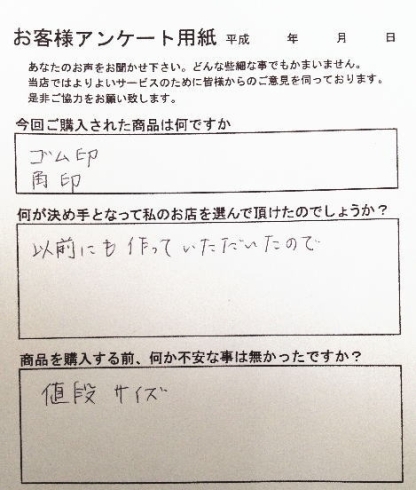 お客様アンケート用紙 平成 年 月 日
あなたのお声をお聞かせ下さい。どんな些細な事でもかまいません。
当店ではよりよいサービスのために皆様からのご意見を伺っております。
是非ご協力をお願い致します。
今回ご購入された商品は何ですか
ゴム印
角印
何が決め手となって私のお店を選んで頂けたのでしょうか？
以前にも作っていただいたので
商品を購入する前、何か不安な事は無かったですか？
値段 サイズ